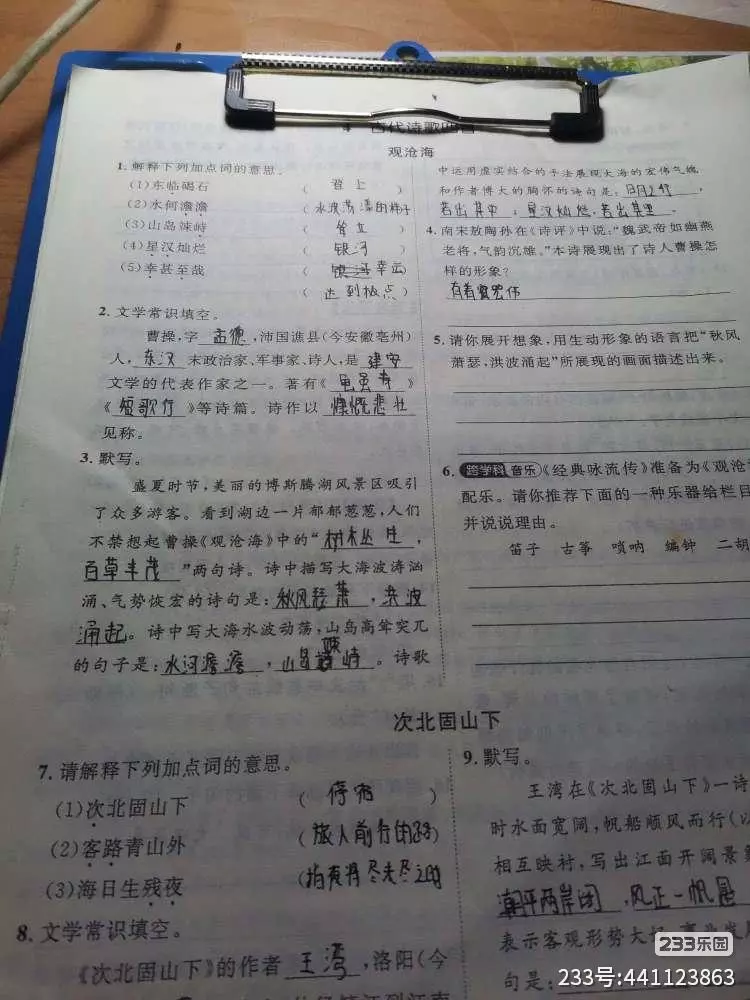 4 古代诗歌四首
观沧海
1. 解释下列加点词的意思。
(1)东临碣石 ( 登上 )
(2)水何澹澹 ( 水波荡漾的样子 )
(3)山岛竦峙 ( 耸立 )
(4)星汉灿烂 ( 银河 )
(5)幸甚至哉 ( 银河 幸运 )
( 达到极点 )
2. 文学常识填空。
曹操,字 孟德 ,沛国谯县(今安徽亳州)
人, 东汉 末政治家、军事家、诗人,是 建安
文学的代表作家之一。著有《 龟虽寿 》
《 短歌行 》等诗篇。诗作以 慷慨悲壮
见称。
3. 默写。
盛夏时节,美丽的博斯腾湖风景区吸引
了众多游客。看到湖边一片郁郁葱葱,人们
不禁想起曹操《观沧海》中的“ 树木丛生 ,
百草丰茂 ”两句诗。诗中描写大海波涛汹
涌、气势恢宏的诗句是: 秋风瑟萧 , 洪波
涌起 。诗中写大海水波动荡,山岛高耸突兀
的句子是: 水河澹澹 , 山岛竦峙 。诗歌
中运用虚实结合的手法展现大海的宏伟气魄
和作者博大的胸怀的诗句是: 日月之行 ,
若出其中 ; 星汉灿烂 , 若出其里 .
4. 南宋敖陶孙在《诗评》中说:“魏武帝如幽燕
老将,气韵沉雄。”本诗展现出了诗人曹操怎
样的形象?
有着 宏伟
5. 请你展开想象,用生动形象的语言把“秋风
萧瑟,洪波涌起”所展现的画面描述出来。
6. 跨学科 音乐 《经典咏流传》准备为《观沧
配乐。请你推荐下面的一种乐器给栏目
并说说理由。
笛子 古筝 唢呐 编钟 二胡
次北固山下
7. 请解释下列加点词的意思。
(1)次北固山下 ( 停宿 )
(2)客路青山外 ( 旅人前行的路 )
(3)海日生残夜 ( 指夜将尽未尽之时 )
8. 文学常识填空。
《次北固山下》的作者 王湾 ,洛阳(今
9. 默写。
王湾在《次北固山下》一诗
时水面宽阔,帆船顺风而行(以
相互映衬,写出江面开阔景
潮平两岸阔 , 风正一帆悬
表示客观形势大
句是:
233乐园
233号:441123863